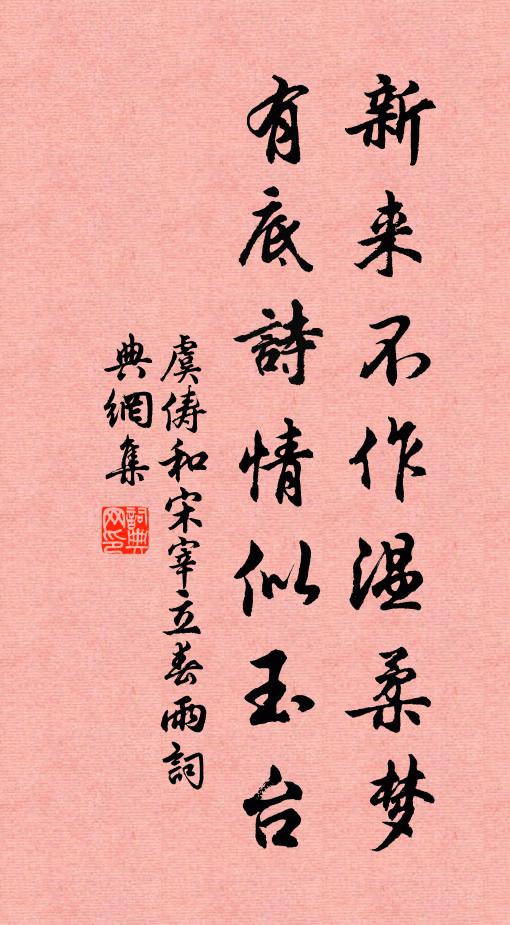 新来不作温柔梦
有底詩情似玉台
虞儔和宋宰立春雨詞
典網集
詞典网印